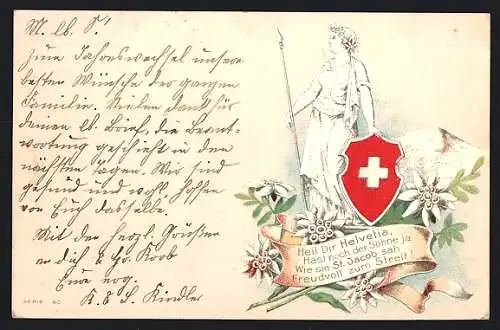 M. lb. S.!
Zum Jahreswechsel unsere
besten Wünsche der ganzen
Familie. Vielen Dank für
deinen lb. Brief, die Beant-
wortung geschieht in den
nächsten Tagen. Wir sind
gesund und wohl hoffen
von Euch dasselbe.
Mit den herzl. Grüßen
an dich &
Eure
K. & L. Kindler
Heil Dir Helvetia,
Hast noch der Söhne ja
Wie sie St. Jacob sah
Freudvoll zum Streit!
SERIE 60